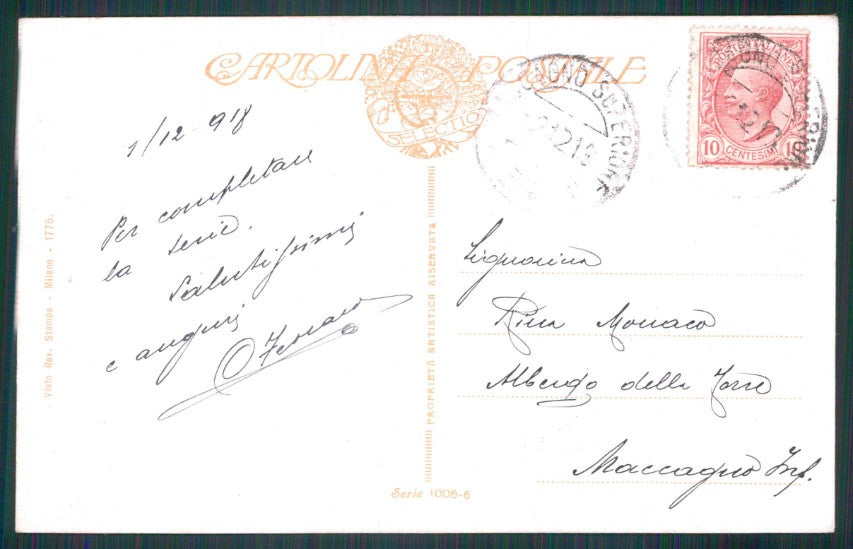 CARTOLINA POSTALE
SELECTIO
1/12 918
Per completare
la serie.
Salutissimi
e auguri
Signorina
Rina Monaco
Albergo della Torre
Maccagno Inf.
10 10
CENTESIMI
POSTE ITALIANE
SUPERIORE
PROPRIETÀ ARTISTICA RISERVATA
Visto Rev. Stampa - Milano - 1775.
Serie 1006-6